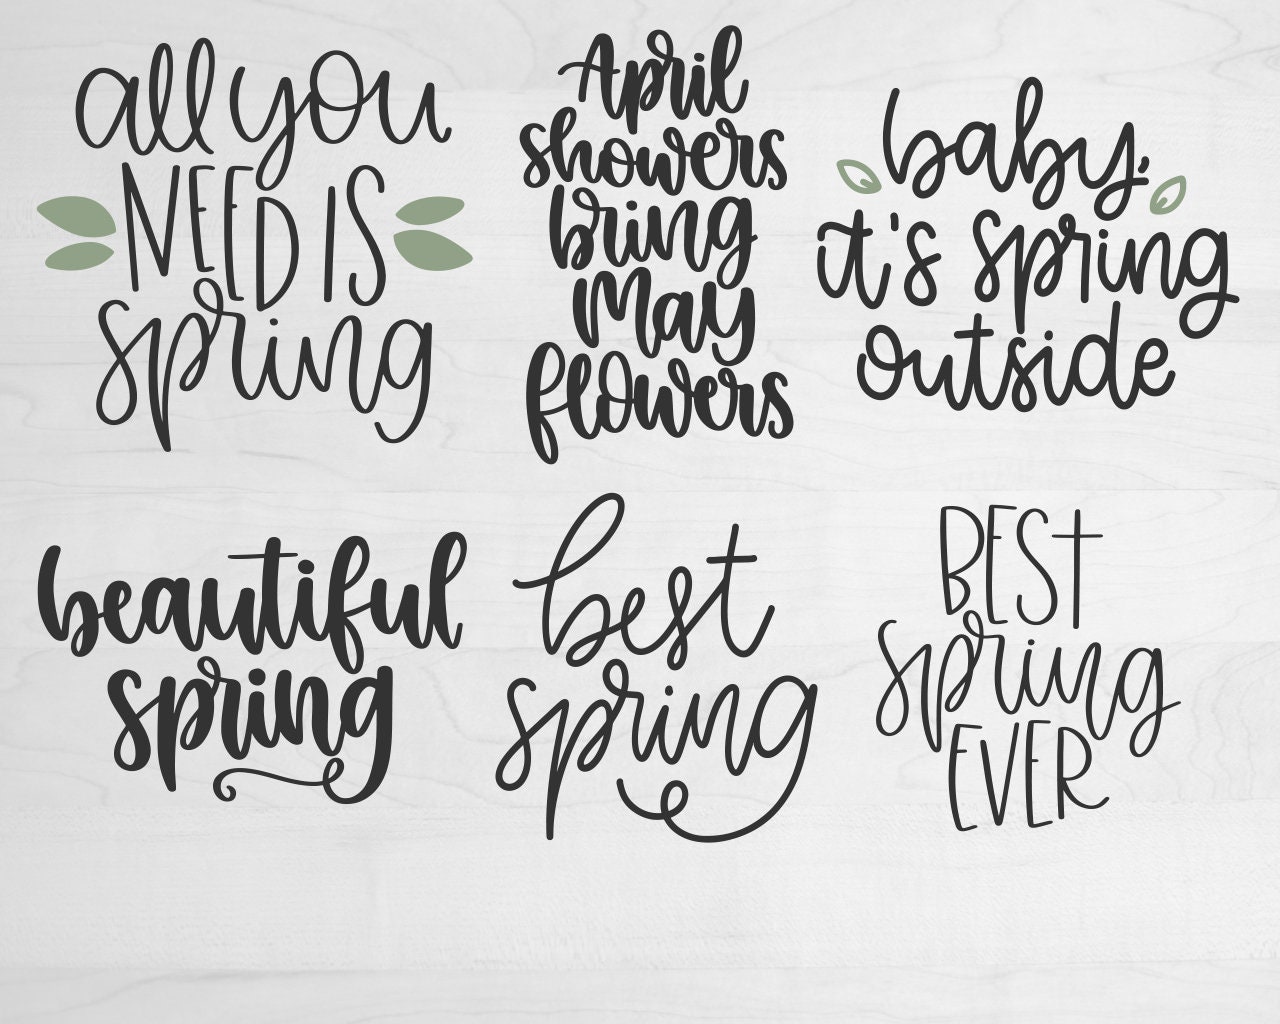 all you
NEED IS
spring
April
showers
bring
May
flowers
baby,
it's spring
outside
beautiful
spring
best
spring
BEST
spring
EVER